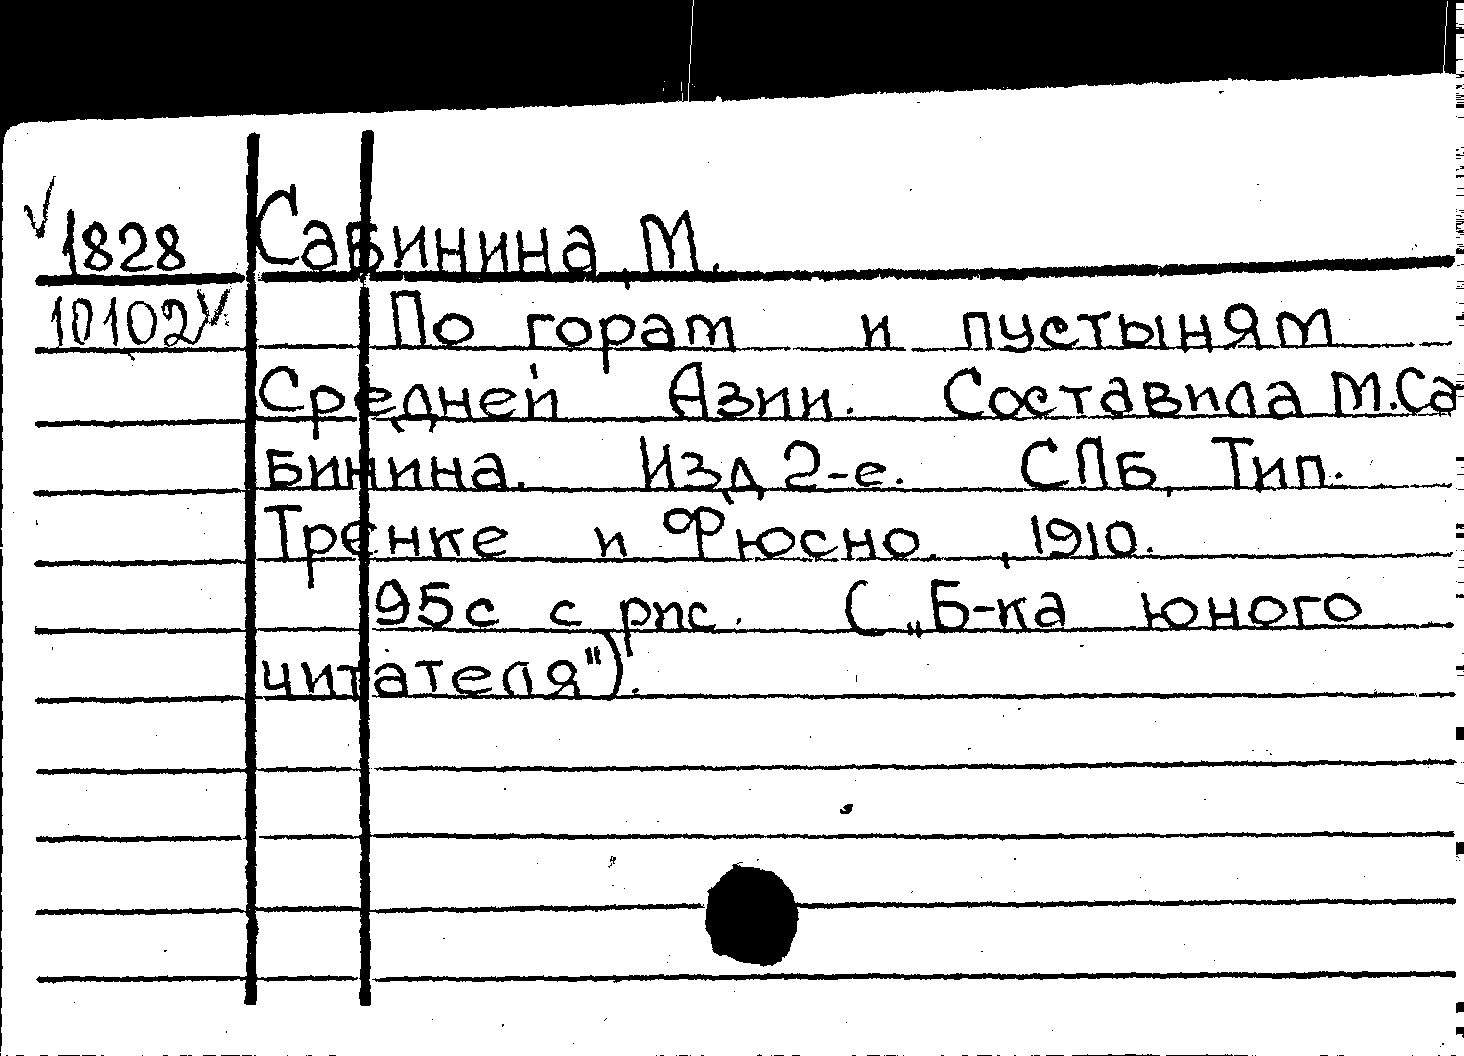 √ 1828 Сабинина, М.
10102 √ По горам и пустыням
Средней Азии. Составила М.Са
бинина. Изд 2-е. СПБ, Тип.
Тренке и Фюсно, 1910.
95с с рис. („Б-ка юного
читателя").